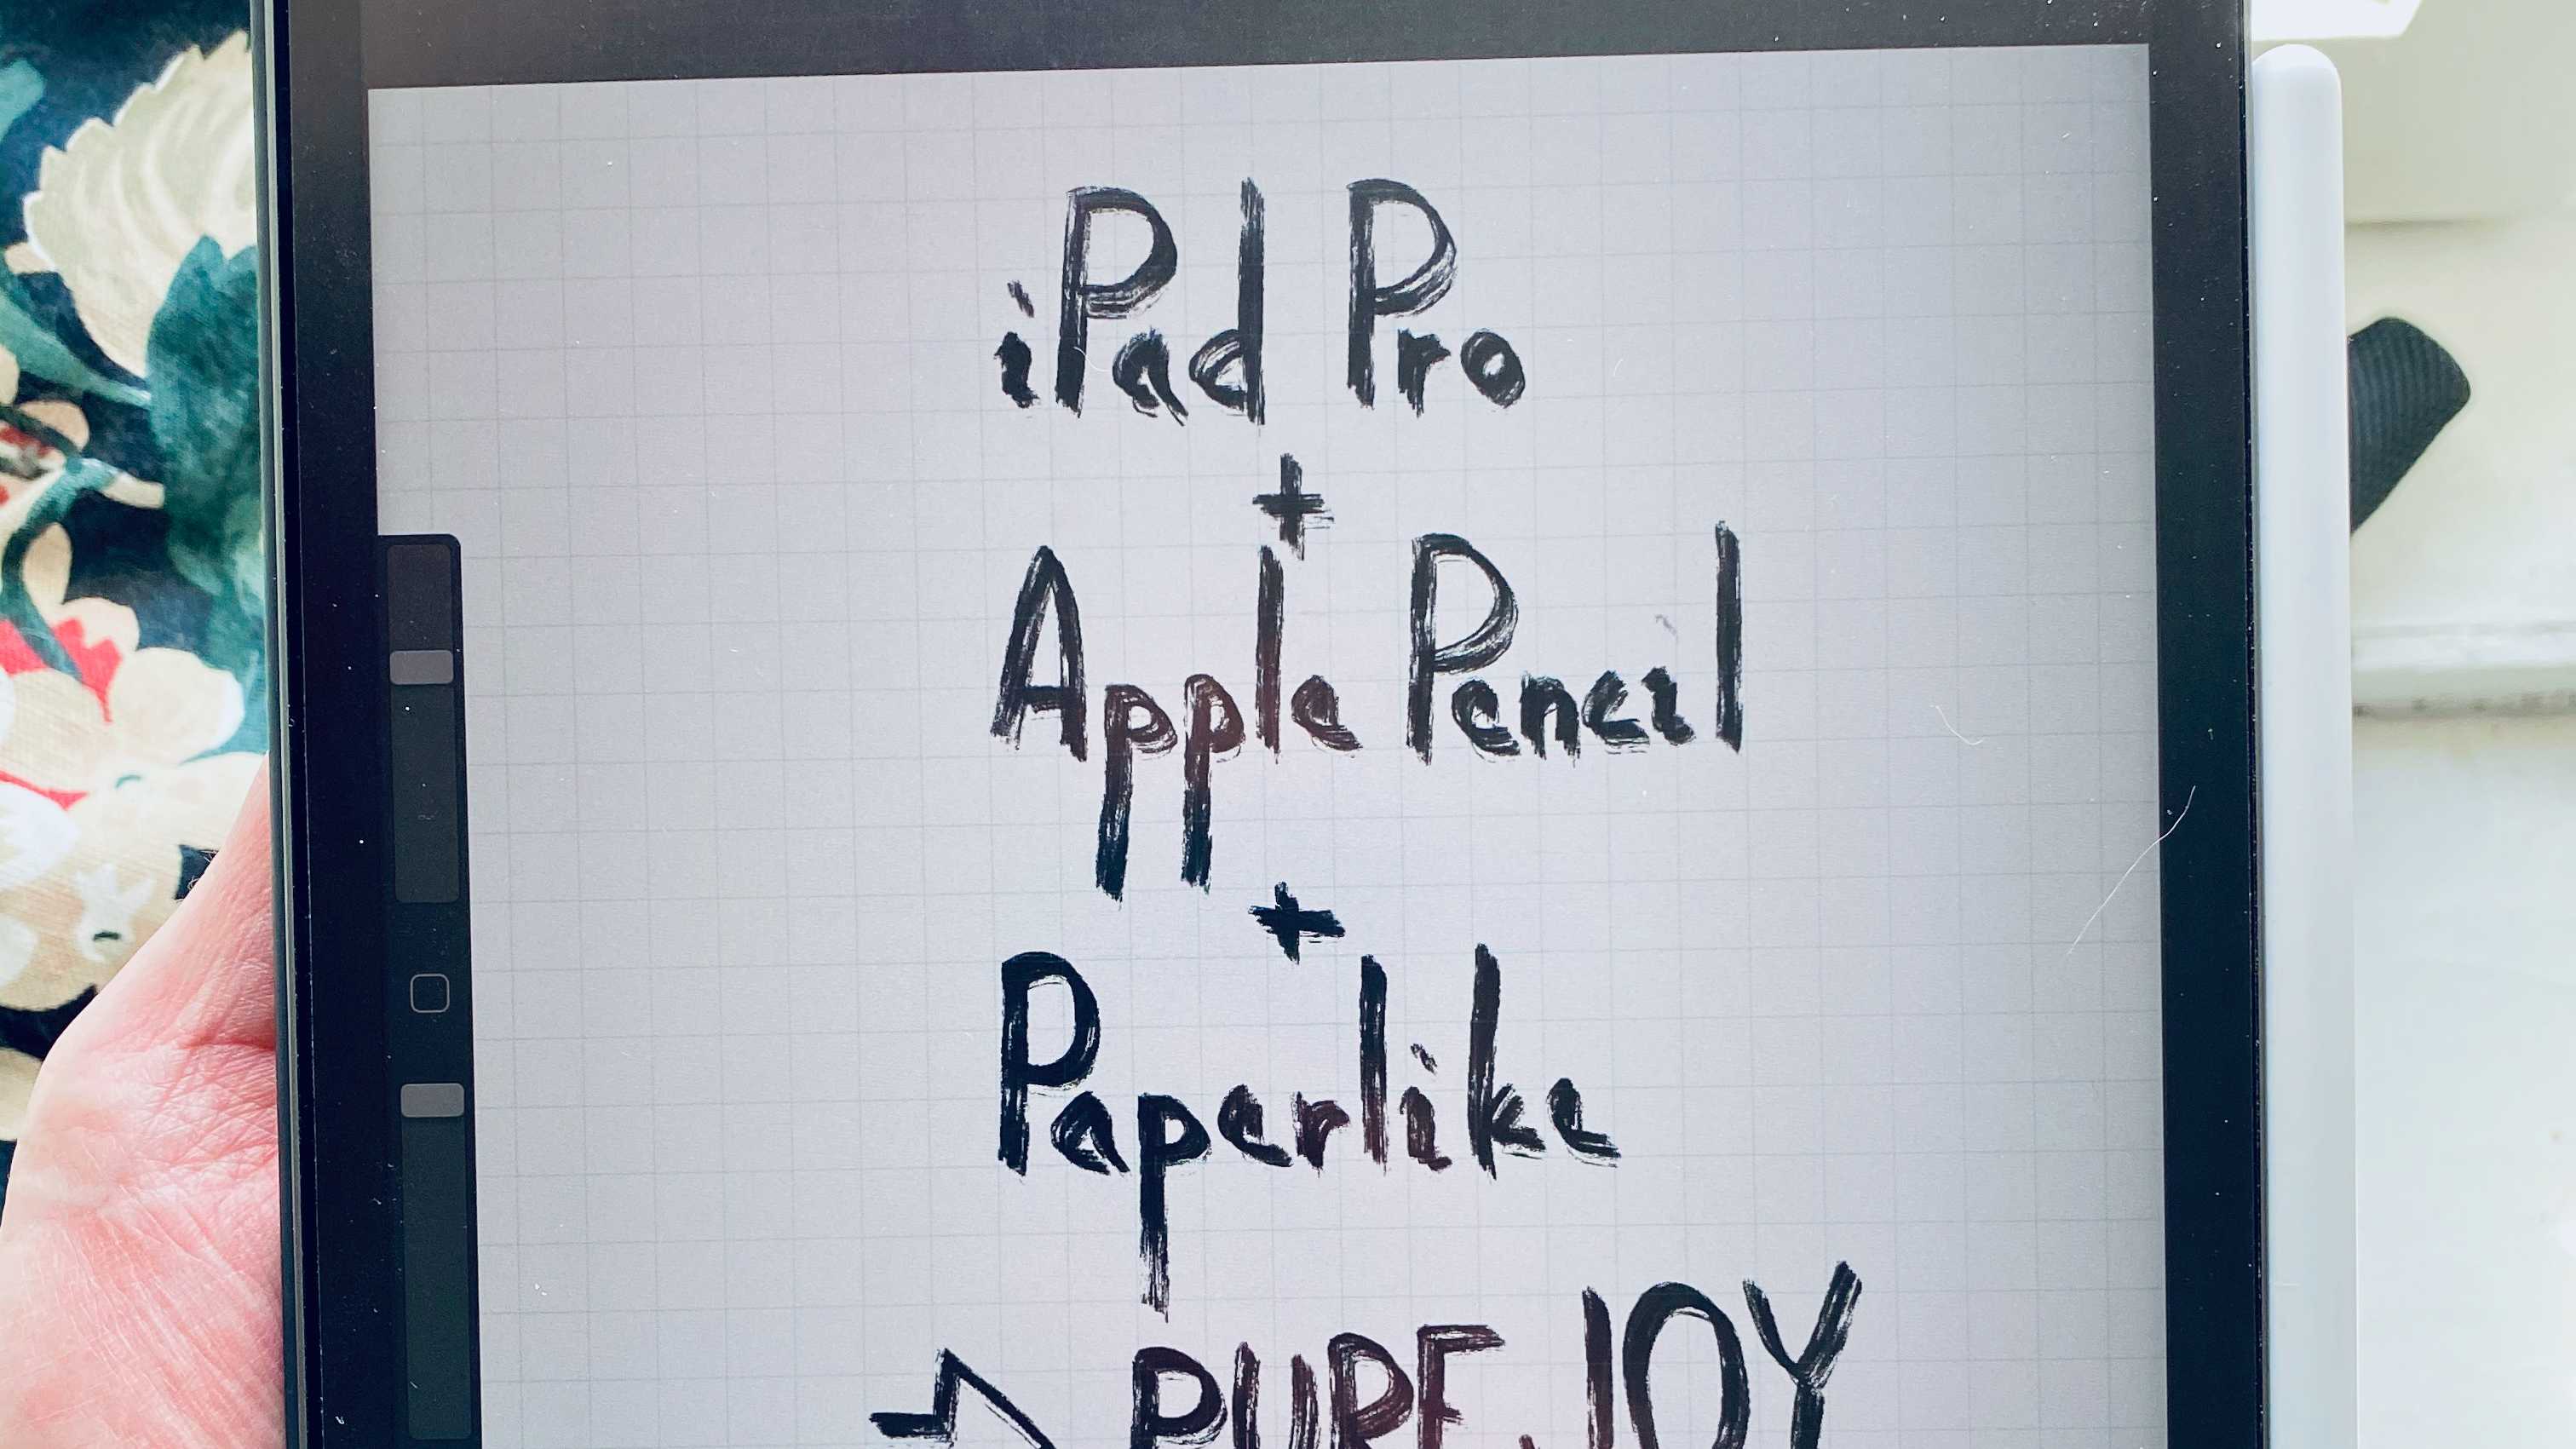 iPad Pro
+
Apple Pencil
+
Paperlike
→ PURE JOY